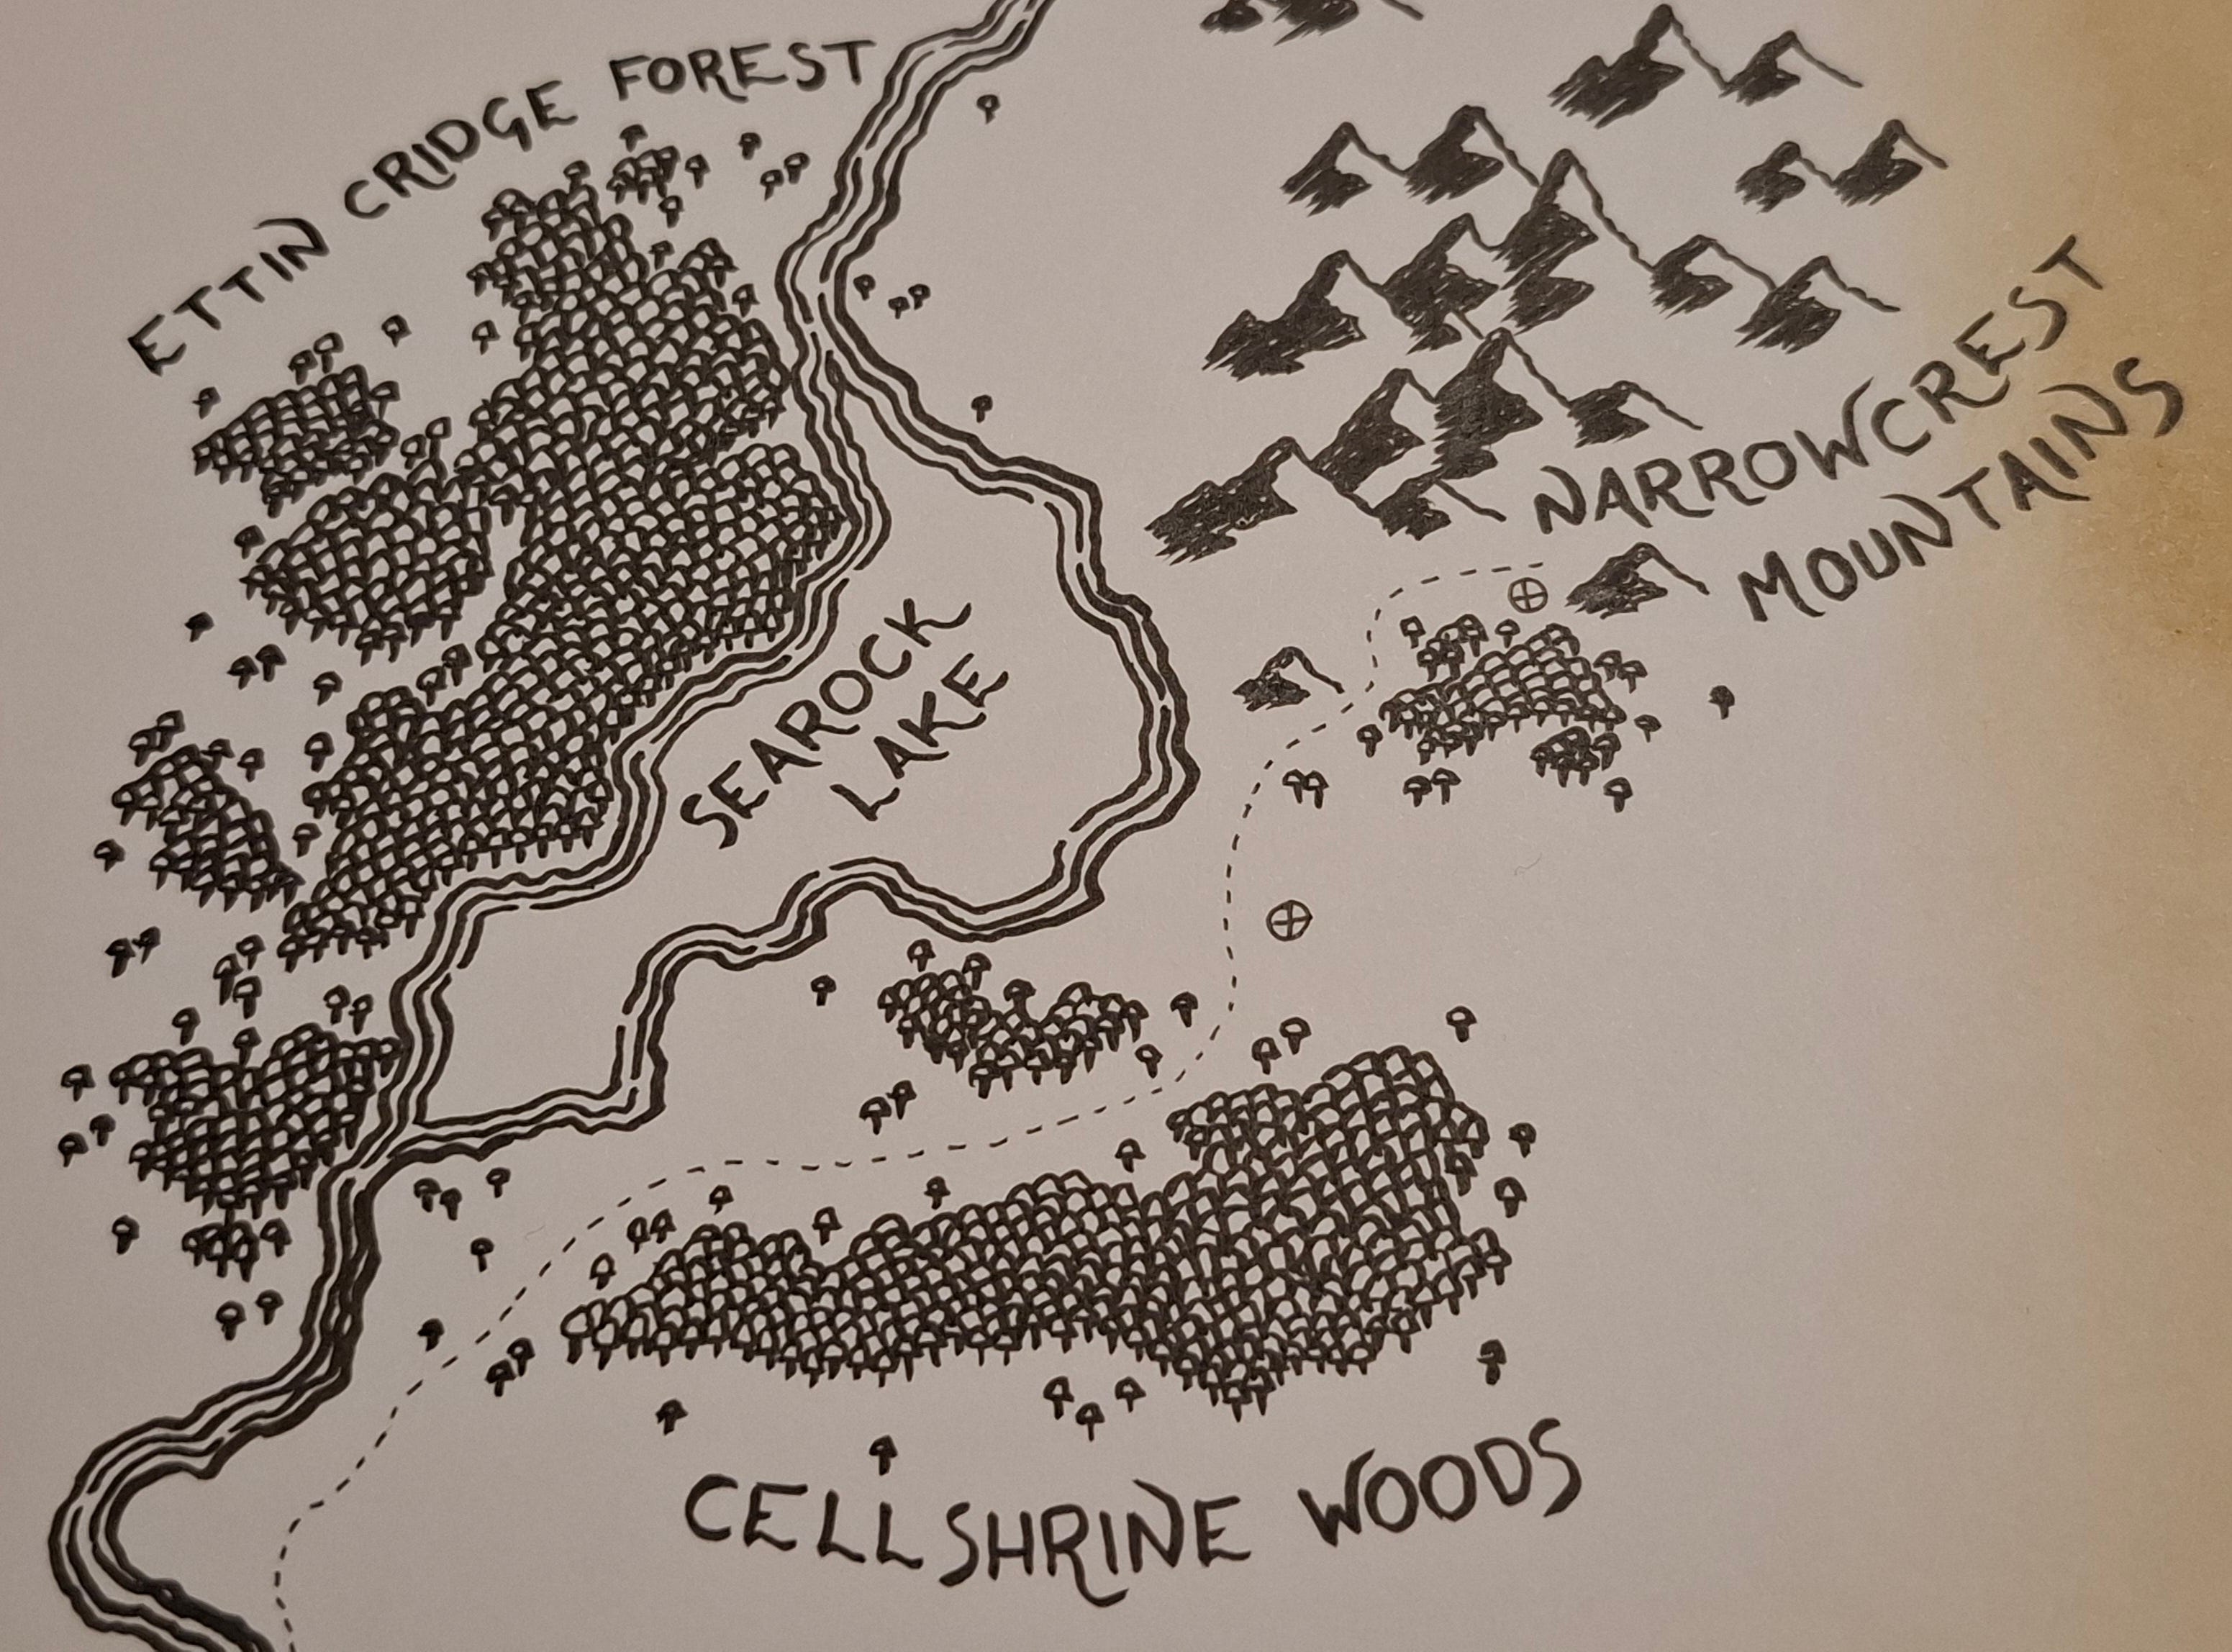 ETTIN CRIDGE FOREST
NARROWCREST
MOUNTAINS
SEAROCK
LAKE
CELLSHRINE WOODS